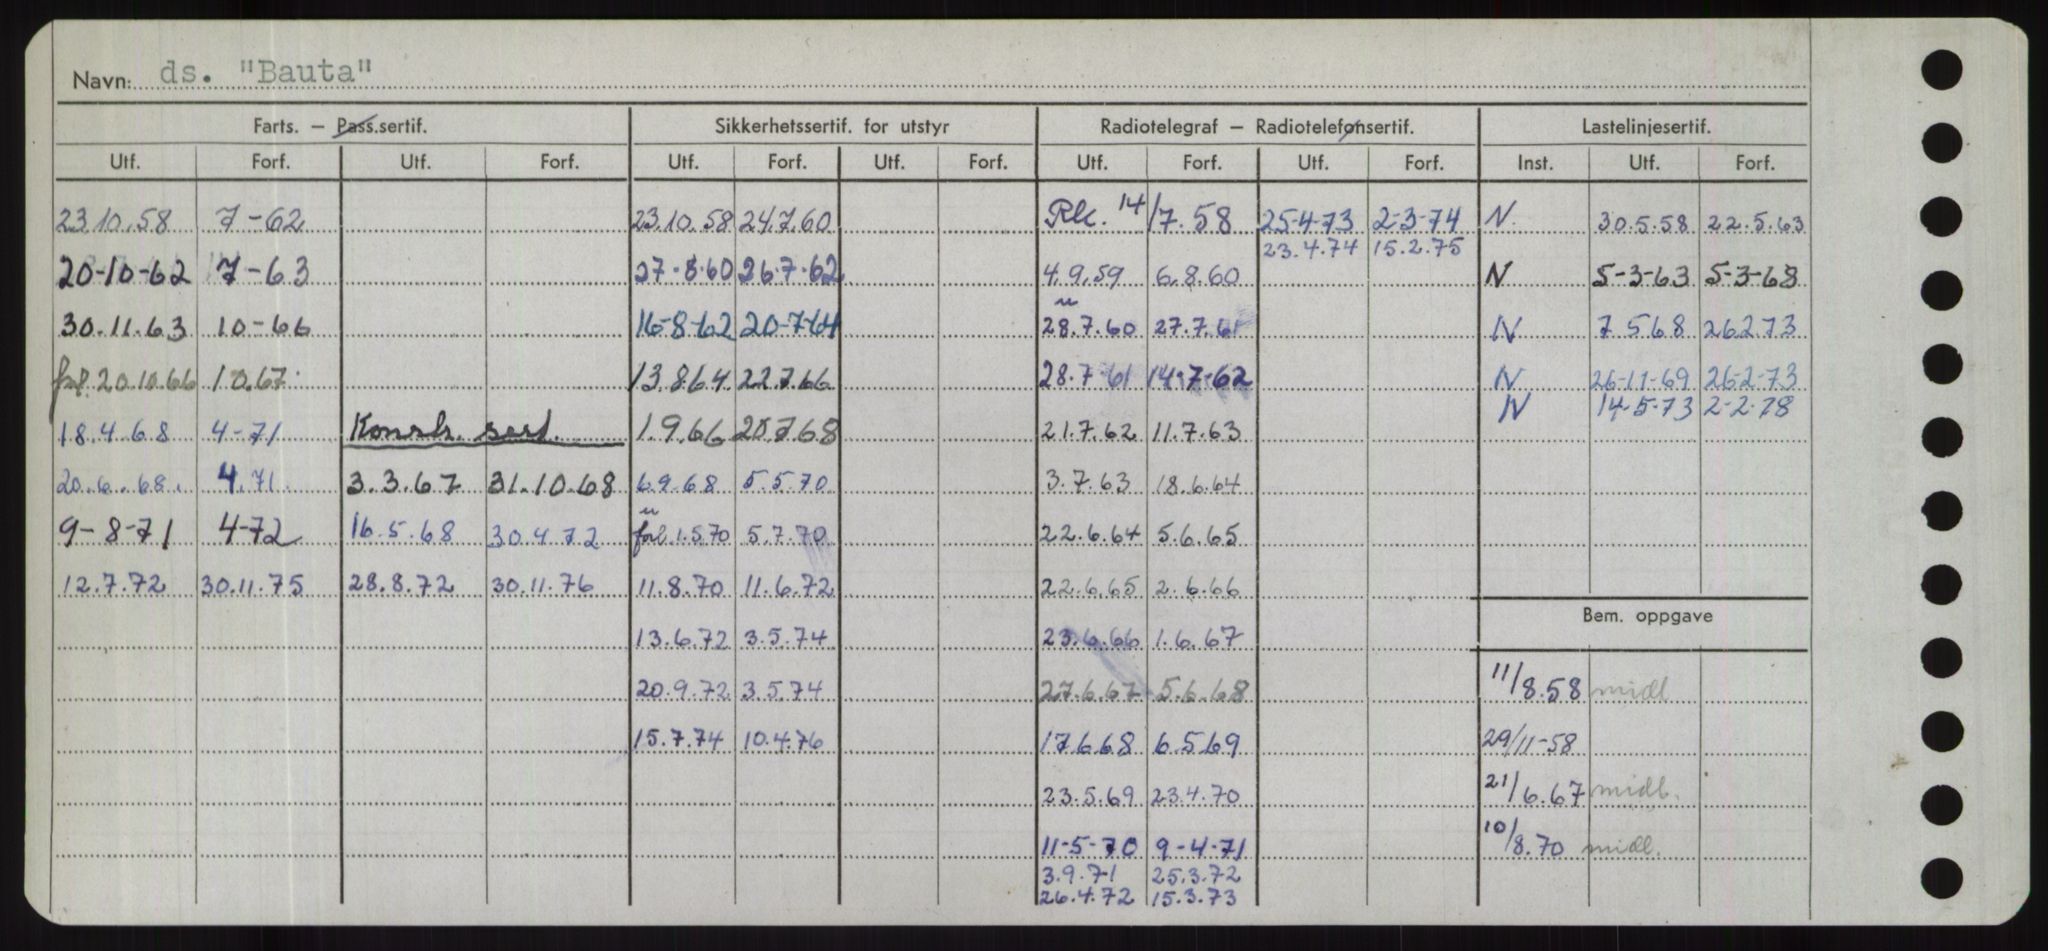 Navn: ds. "Bauta"
Farts. – Pass.sertif. Sikkerhetssertif. for utstyr Radiotelegraf – Radiotelefonsertif. Lastelinjesertif.
Utf. Forf. Utf. Forf. Utf. Forf. Utf. Forf. Utf. Forf. Utf. Forf. Inst. Utf. Forf.
23.10.58 7-62 23.10.58 24.7.60 Rk. 14/7.58 25-4-73 2-3-74 N. 30.5.58 22.5.63
23.4.74 15.2.75
20-10-62 7-63 27-8-60 26-7-62 4.9.59 6.8.60 N 5-3-63 5-3-68
30.11.63 10-66 16-8-62 20-7-64 28.7.60 27.7.61 N 7.5.68 26.2.73
20.10.66 10.67 13.8.64 22.7.66 28.7.61 14.7.62 N 26-11-69 26-2-73
N 14-5-73 2-2-78
18.4.68 4-71 Konstr. sert. 1.9.66 20.7.68 21.7.62 11.7.63
20.6.68. 4.71. 3.3.67 31.10.68 6.9.68 5.5.70 3.7.63 18.6.64
9-8-71 4-72 16.5.68 30.4.72 1.5.70 5.7.70 22.6.64 5.6.65
12.7.72 30.11.75 28.8.72 30.11.76 11.8.70 11.6.72 22.6.65 2.6.66
Bem. oppgave
13.6.72 3.5.74 23.6.66 1.6.67
20.9.72 3.5.74 27.6.67 5.6.68 11/8.58 midl
15.7.74 10.4.76 17.6.68 6.5.69 29/11-58
23.5.69 23.4.70 21/6.67 midl.
11-5-70 9-4-71 10/8.70 midl.
3.9.71 25.3.72
26.4.72 15.3.73